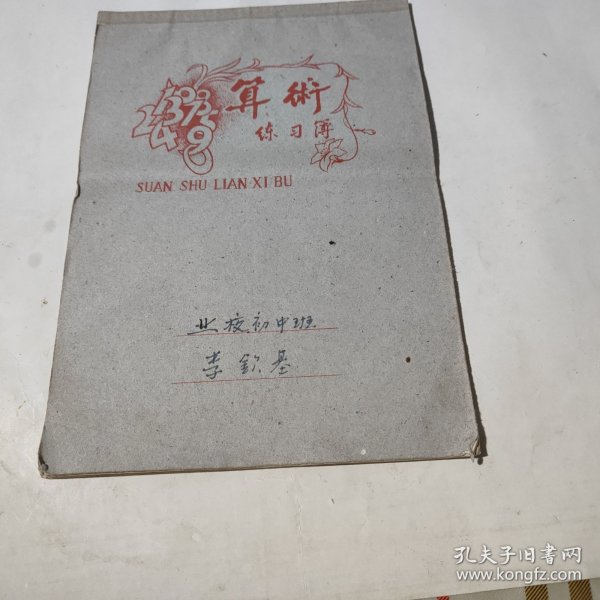 算術
练习簿
SUAN SHU LIAN XI BU
业校初中班
李钦基
孔夫子旧书网
www.kongfz.com